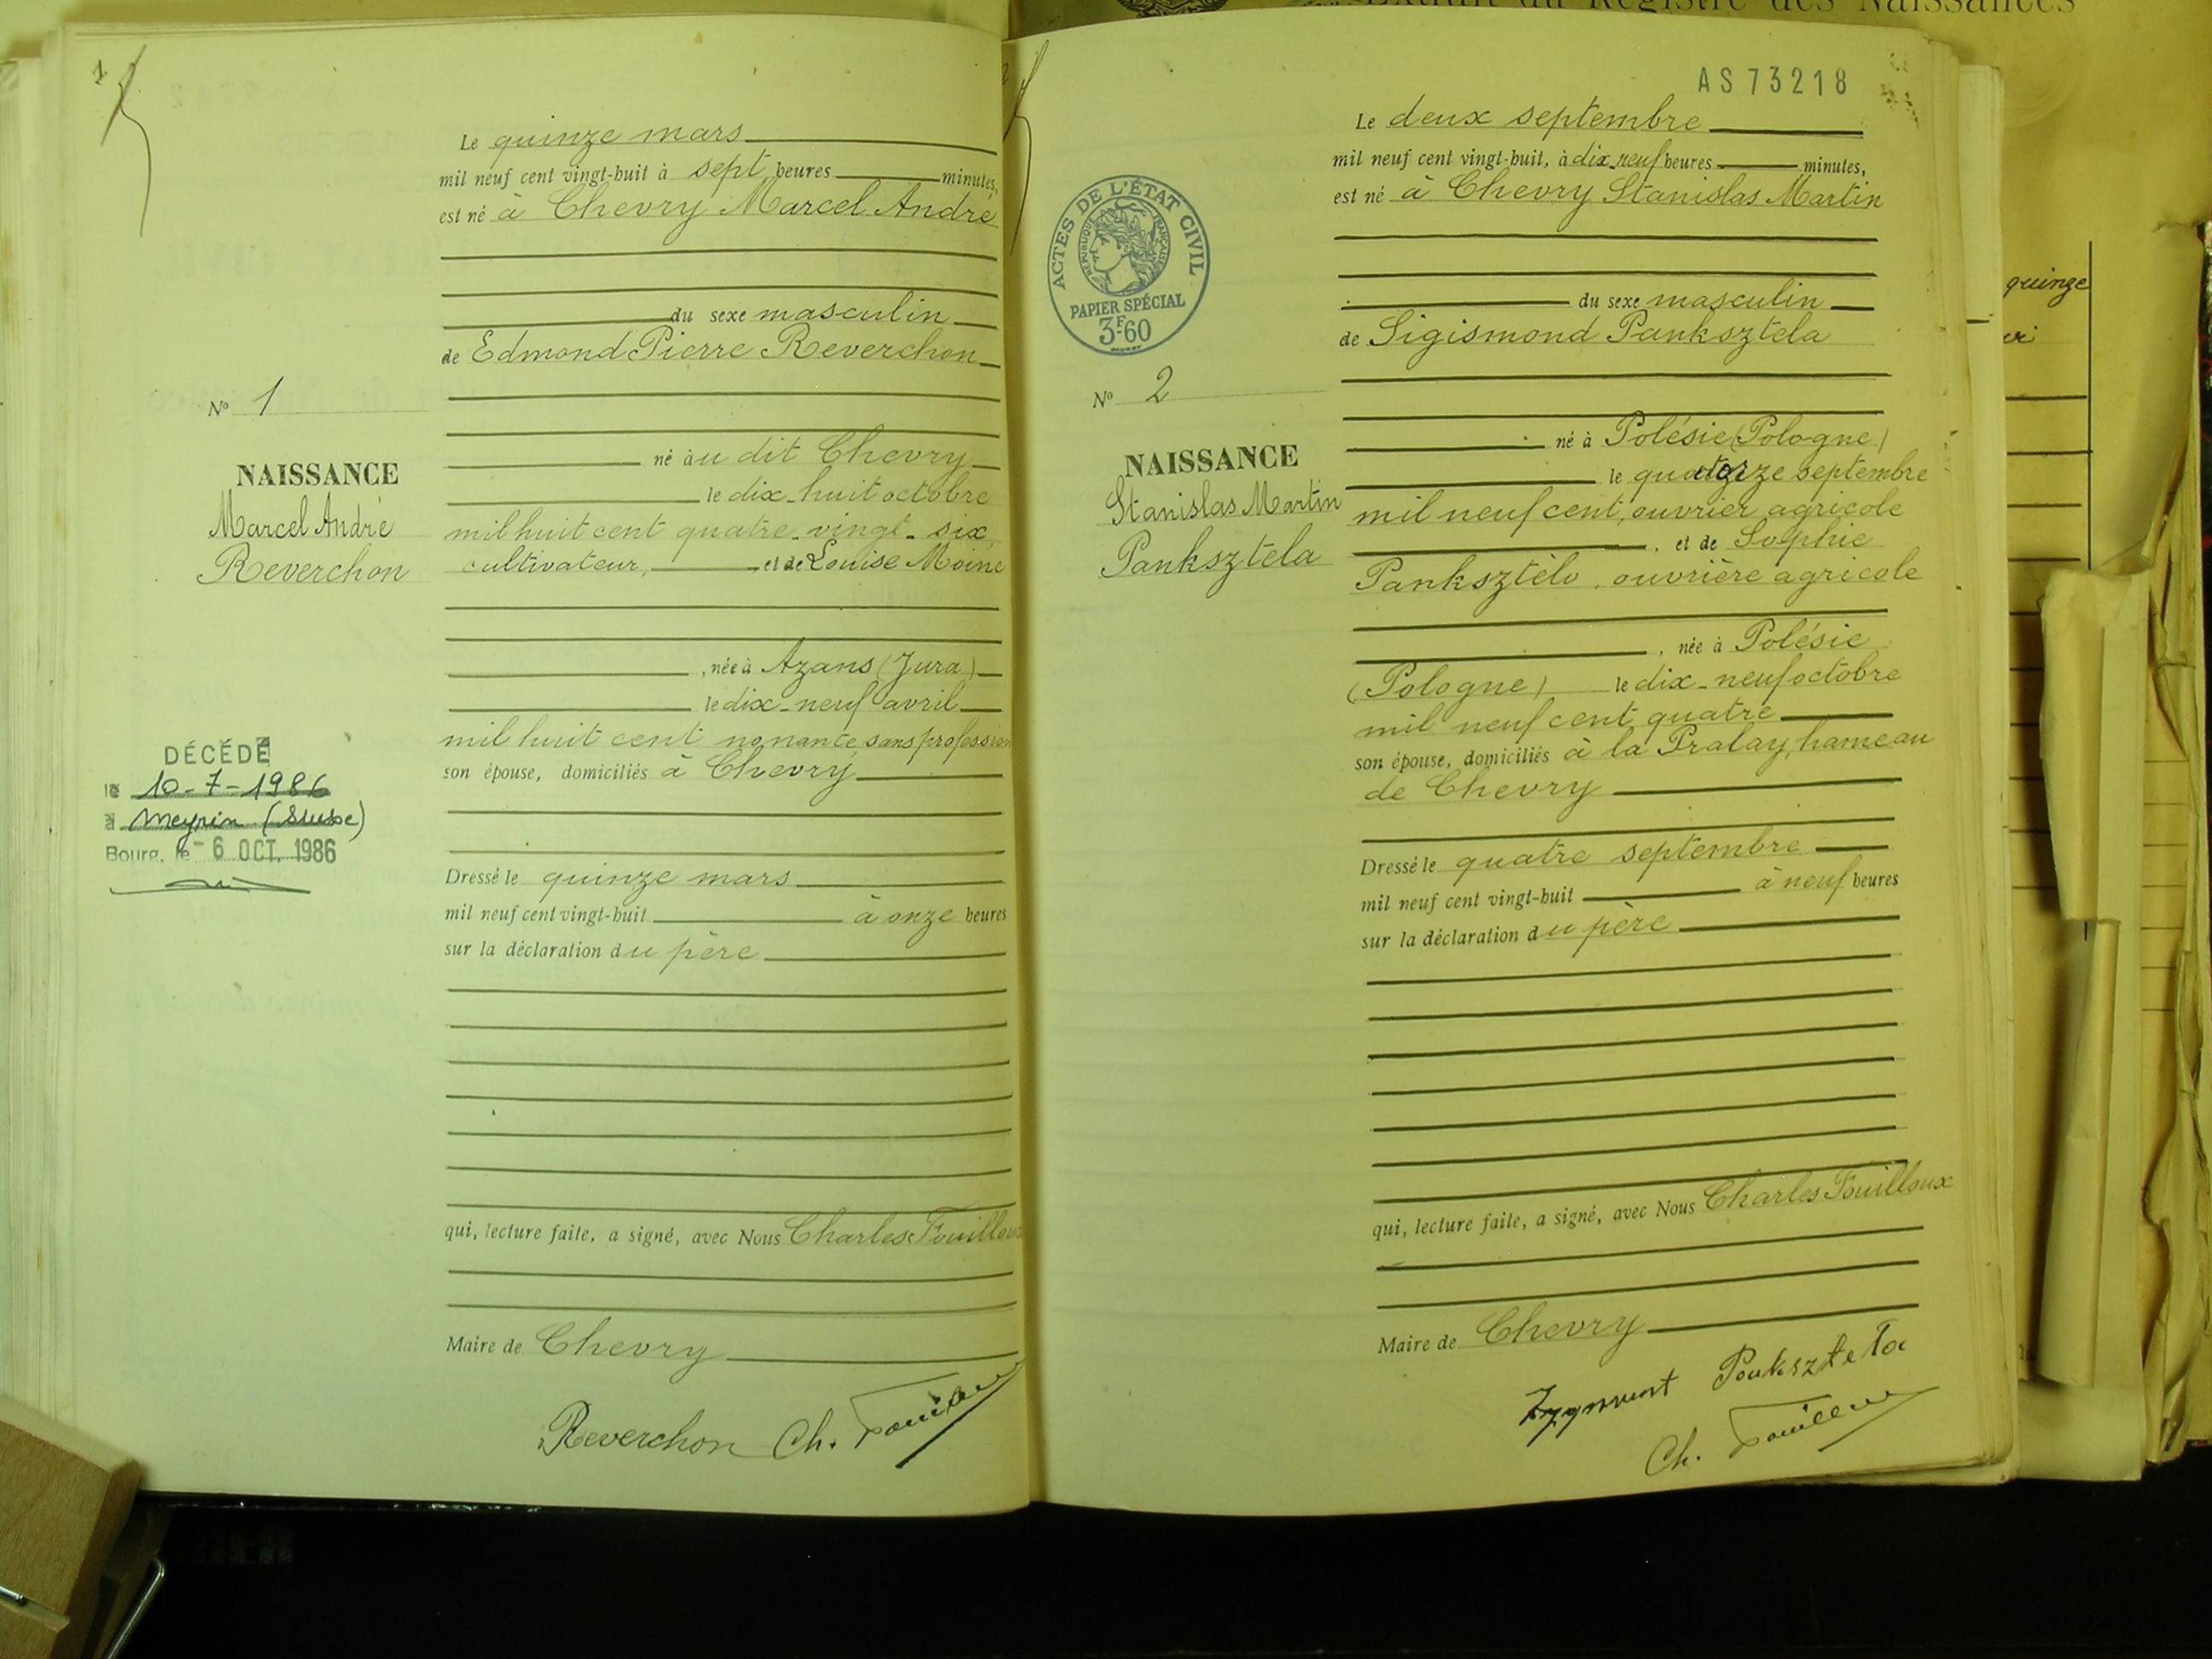 Extrait du Registre des Naissances
1
Le quinze mars
mil neuf cent vingt-huit à sept heures minutes,
est né à Chevry Marcel André
du sexe masculin
de Edmond Pierre Reverchon
N° 1
NAISSANCE
Marcel André
Reverchon
né au dit Chevry
le dix-huit octobre
mil huit cent quatre-vingt-six,
cultivateur, et de Louise Moine
, née à Azans (Jura)
le dix-neuf avril
mil huit cent nonante, sans profession
son épouse, domiciliés à Chevry
DÉCÉDÉ
le 10-7-1986
à Meyrin (Suisse)
Bourg, le - 6 OCT. 1986
Dressé le quinze mars
mil neuf cent vingt-huit à onze heures
sur la déclaration du père
qui, lecture faite, a signé, avec Nous Charles Fouilloux
Maire de Chevry
Reverchon Ch. Fouilloux
AS 73218
Le deux septembre
mil neuf cent vingt-huit, à dix-neuf heures minutes,
est né à Chevry Stanislas Martin
ACTES DE L'ÉTAT CIVIL
RÉPUBLIQUE FRANÇAISE
PAPIER SPÉCIAL
3F60
du sexe masculin
de Sigismond Panksztela
N° 2
NAISSANCE
Stanislas Martin
Panksztela
né à Polésie (Pologne)
le quatorze septembre
mil neuf cent, ouvrier agricole
, et de Sophie
Panksztélo, ouvrière agricole
, née à Polésie
(Pologne) le dix-neuf octobre
mil neuf cent quatre
son épouse, domiciliés à la Pralay, hameau
de Chevry
Dressé le quatre septembre
mil neuf cent vingt-huit à neuf heures
sur la déclaration du père
qui, lecture faite, a signé, avec Nous Charles Fouilloux
Maire de Chevry
Zygmunt Pouksztela
Ch. Fouilloux
quinze